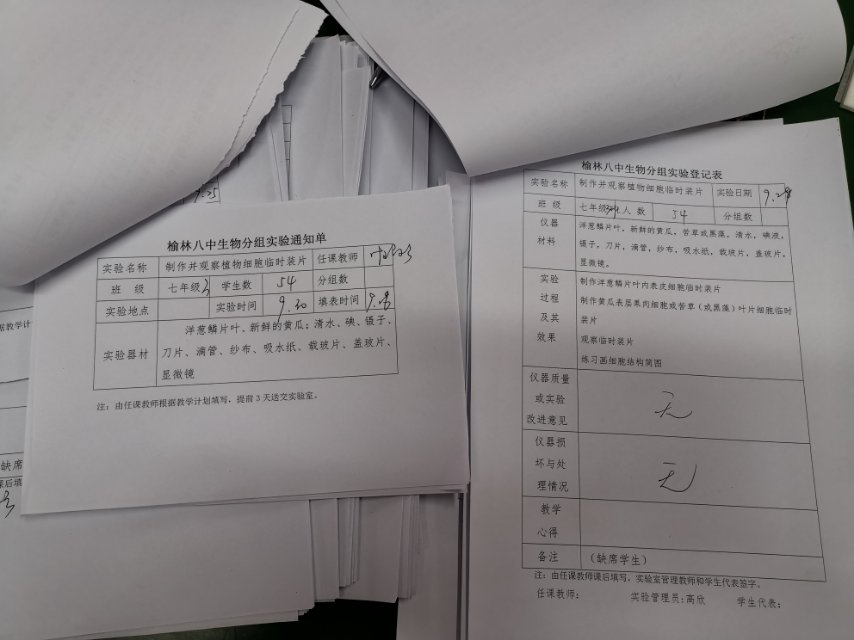 9.25
榆林八中生物分组实验通知单
实验名称 制作并观察植物细胞临时装片 任课教师
班 级 七年级 学生数 54 分组数
实验地点 实验时间 9.30 填表时间
实验器材
洋葱鳞片叶、新鲜的黄瓜；清水、碘、镊子、
刀片、滴管、纱布、吸水纸、载玻片、盖玻片、
显微镜
注：由任课教师根据教学计划填写，提前 3 天送交实验室。
榆林八中生物分组实验登记表
实验名称 制作并观察植物细胞临时装片 实验日期
班 级 七年级 人 数 54 分组数
仪器
材料
洋葱鳞片叶，新鲜的黄瓜，苦草或黑藻，清水，碘液，
镊子，刀片，滴管，纱布，吸水纸，载玻片，盖玻片，
显微镜。
实验
过程
及其
效果
制作洋葱鳞片叶内表皮细胞临时装片
制作黄瓜表层果肉细胞或苦草（或黑藻）叶片细胞临时
装片
观察临时装片
练习画细胞结构简图
仪器质量
或实验
改进意见
无
仪器损
坏与处
理情况
无
教学
心得
备注 （缺席学生）
注：由任课教师课后填写，实验室管理教师和学生代表签字。
任课教师： 实验管理员：高欣 学生代表：
缺席